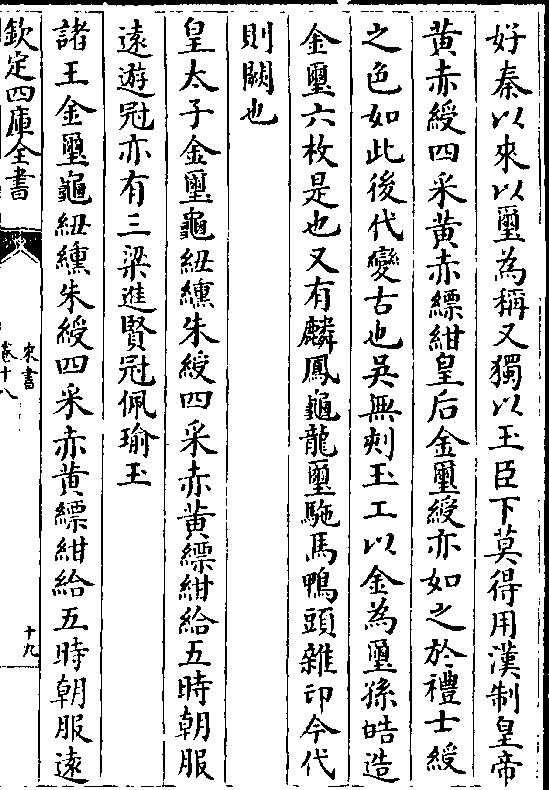 好秦以來以璽為稱又獨以玉臣下莫得用漢制皇帝
黄赤綬四采黄赤縹紺皇后金璽綬亦如之於禮士綬
之色如此後代變古也吳無刻玉工以金為璽孫皓造
金璽六枚是也又有麟鳳龜龍璽駞馬鴨頭雜印今代
則闕也
皇太子金璽龜紐纁朱綬四采赤黄縹紺給五時朝服
遠遊冠亦有三梁進賢冠佩瑜玉
諸王金璽龜紐纁朱綬四采赤黄縹紺給五時朝服遠
欽定四庫全書
宋書
卷十八
十九